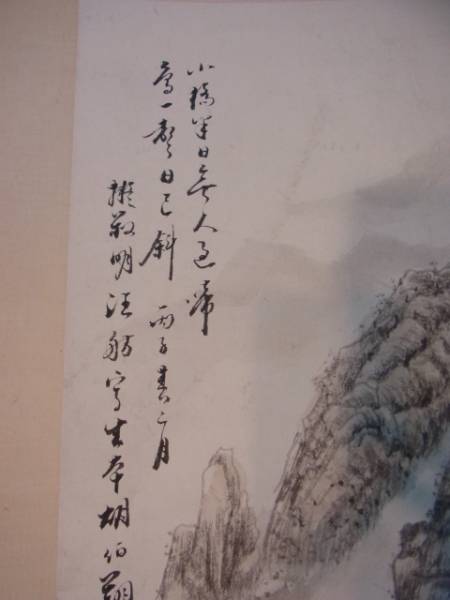 小橋半日無人過啼
鳥一聲日已斜 丙子春二月
擬啟明汪舫寫生本胡伯翔